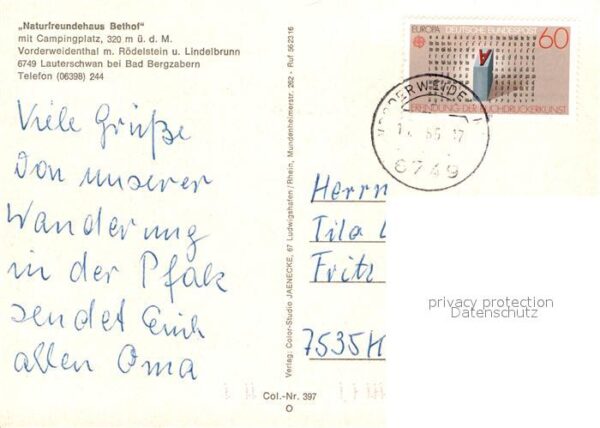 „Naturfreundehaus Bethof“
mit Campingplatz, 320 m ü. d. M.
Vorderweidenthal m. Rödelstein u. Lindelbrunn
6749 Lauterschwan bei Bad Bergzabern
Telefon (06398) 244
Viele Grüße
Von unserer
Wanderung
in der Pfalz
sendet Euch
allen Oma
Verlag: Color-Studio JAENECKE, 67 Ludwigshafen/Rhein, Mundenheimerstr. 262 - Ruf 562316
Col.-Nr. 397
EUROPA DEUTSCHE BUNDESPOST 60
ERFINDUNG DER BUCHDRUCKERKUNST
6749
Herrn
Tilo
Fritz
7535
privacy protection
Datenschutz